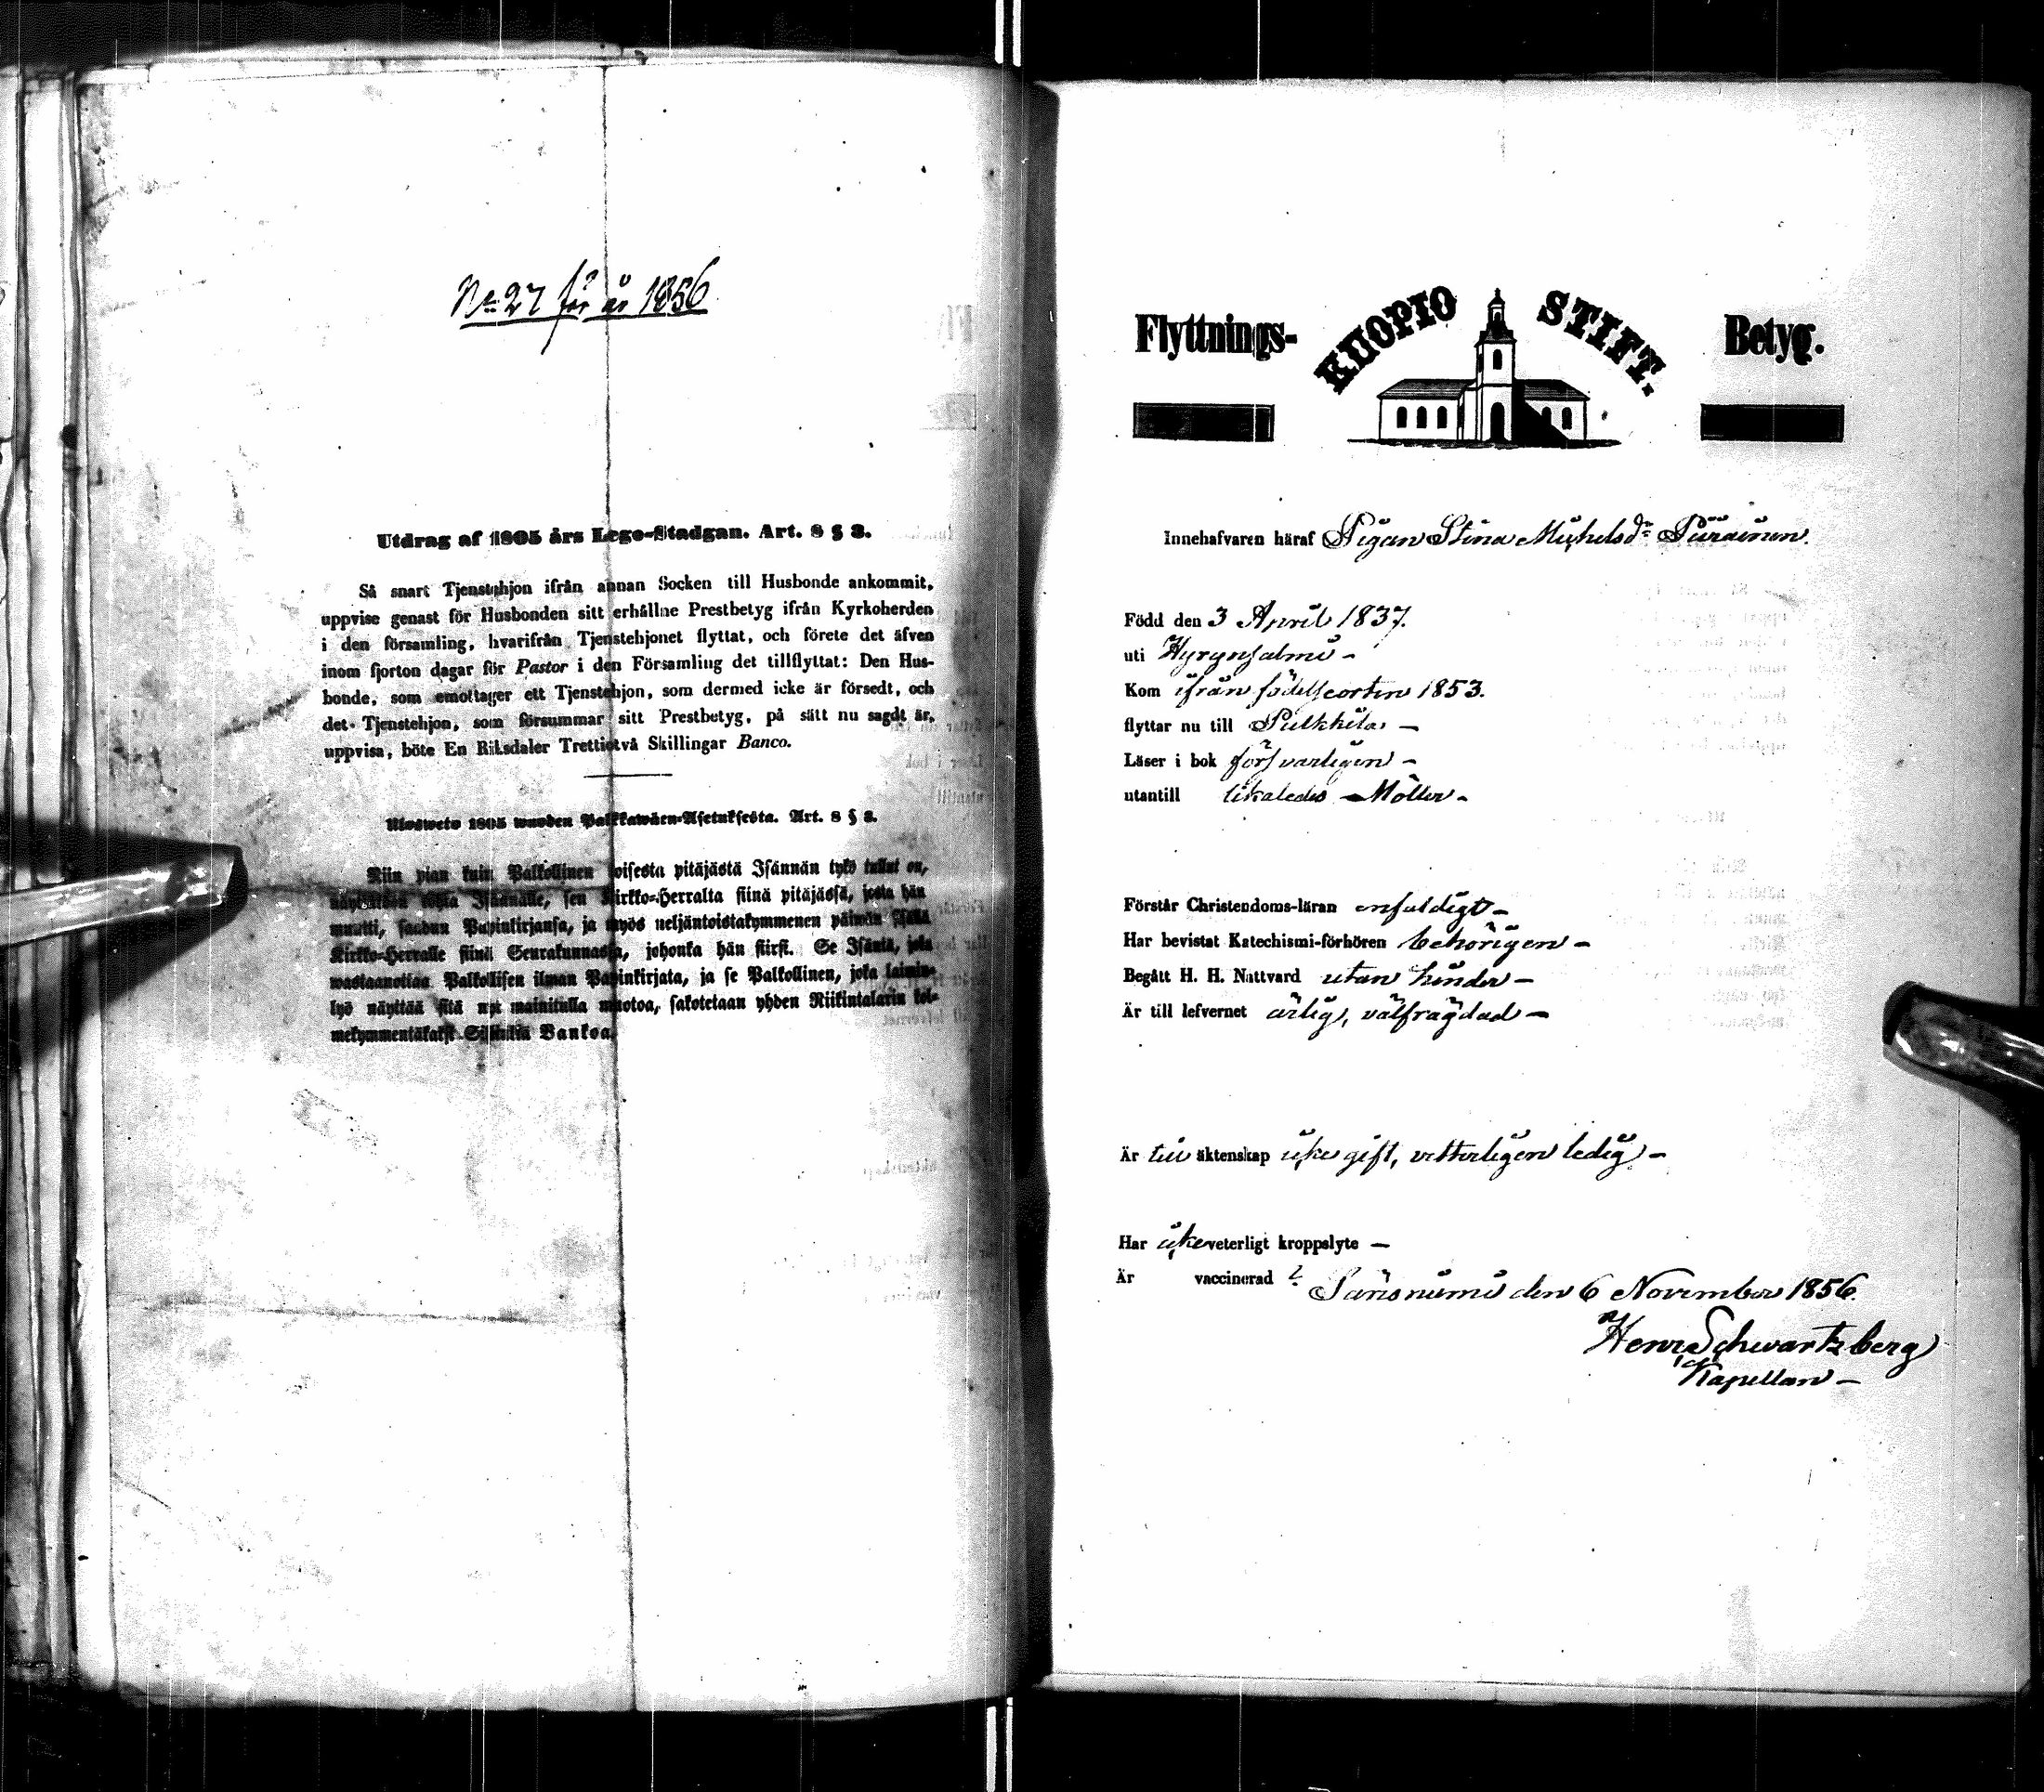 No 27 för år 1856
Utdrag af 1805 års Lego-Stadgan. Art. 8 § 3.
Så snart Tjenstehjon ifrån annan Socken till Husbonde ankommit,
uppvise genast för Husbonden sitt erhållne Prestbetyg ifrån Kyrkoherden
i den församling, hvarifrån Tjenstehjonet flyttat, och förete det äfven
inom fjorton dagar för Pastor i den Församling det tillflyttat: Den Hus-
bonde, som emottager ett Tjenstehjon, som dermed icke är försedt, och
det Tjenstehjon, som försummar sitt Prestbetyg, på sätt nu sagdt är,
uppvisa, böte En Riksdaler Trettiotvå Skillingar Banco.
Ulosweto 1805 wuoden Palkkawäen-Asetuksesta. Art. 8 § 3.
Niin pian kuin Palkollinen toisesta pitäjästä Isännän tykö tullut on,
Isännälle, sen Kirkko-Herralta siinä pitäjässä, josta hän
muutti, saadun Papinkirjansa, ja myös neljäntoistakymmenen päiwän
Kirkko-Herralle siinä Seurakunnassa, johonka hän siirsi. Se Isäntä, joka
wastaanottaa Palkollisen ilman Papinkirjata, ja se Palkollinen, joka laimin-
lyö näyttää sitä nyt mainitulla muotoa, sakotetaan yhden Riikintalarin kol-
mekymmentäkaksi Skillinkiä Bankoa.
Flyttnings- KUOPIO STIFT. Betyg.
Innehafvaren häraf Pigan Stina Michelsdr Piirainen.
Född den 3 April 1837.
uti Hyrynsalmi -
Kom ifrån födelseorten 1853.
flyttar nu till Pulkkila. -
Läser i bok försvarligen -
utantill likaledes - Möller -
Förstår Christendoms-läran enfaldigt -
Har bevistat Katechismi-förhören behörigen -
Begått H. H. Nattvard utan hinder -
Är till lefvernet ärlig, välfrägdad -
Är till äktenskap icke gift, vetterligen ledig -
Har icke veterligt kroppslyte -
Är vaccinerad ?
den 6 November 1856.
Henr Schwartzberg
Kapellan -